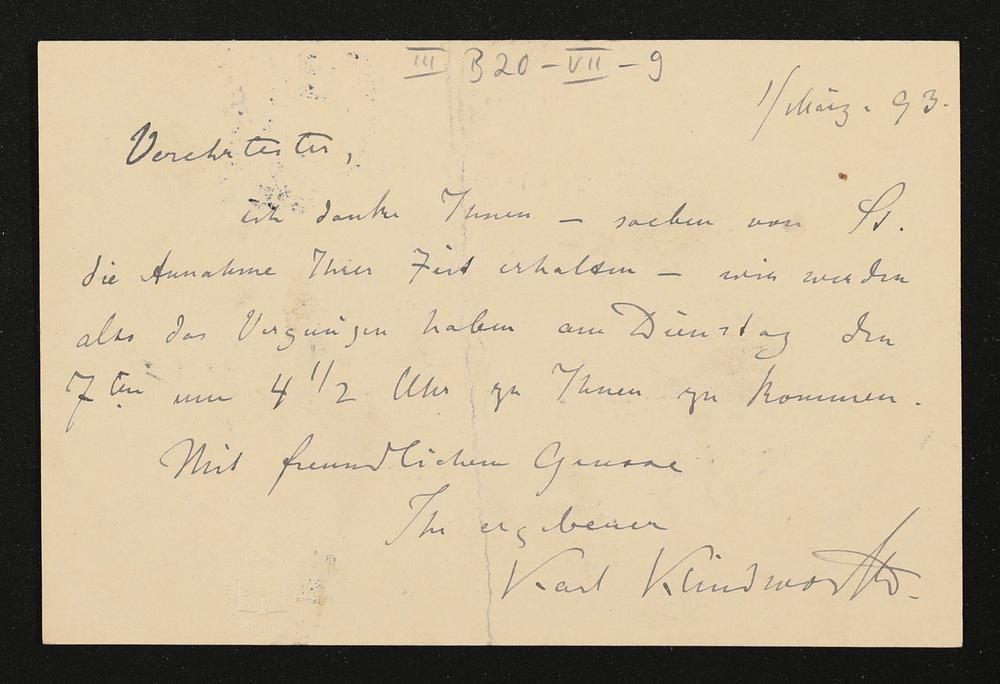 III B20 - VII - 9
1/ März. 93.
Verehrtester,
ich danke Ihnen — soeben von St.
die Annahme Ihrer Zeit erhalten — wir werden
also das Vergnügen haben am Dienstag den
7ten um 4 1/2 Uhr zu Ihnen zu kommen.
Mit freundlichem Grusse
Ihr ergebener
Karl Klindworth.